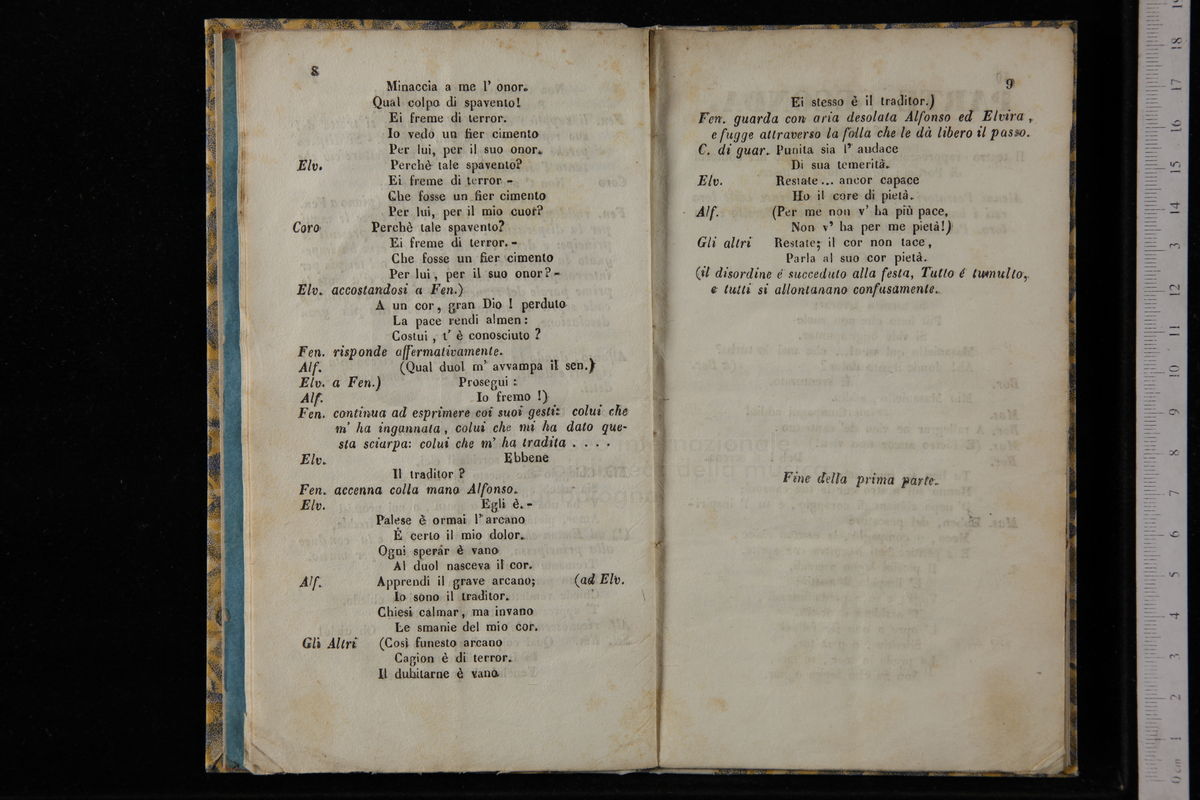 8
Minaccia a me l' onor.
Qual colpo di spavento!
Ei freme di terror.
Io vedo un fier cimento
Per lui, per il suo onor.
Elv. Perchè tale spavento?
Ei freme di terror -
Che fosse un fier cimento
Per lui, per il mio cuor?
Coro Perchè tale spavento?
Ei freme di terror. -
Che fosse un fier cimento
Per lui, per il suo onor? -
Elv. accostandosi a Fen.)
A un cor, gran Dio ! perduto
La pace rendi almen :
Costui, t' è conosciuto ?
Fen. risponde affermativamente.
Alf. (Qual duol m' avvampa il sen.)
Elv. a Fen.) Prosegui :
Alf. Io fremo !)
Fen. continua ad esprimere coi suoi gesti: colui che
m' ha ingannata, colui che mi ha dato que-
sta sciarpa: colui che m' ha tradita . . . .
Elv. Ebbene
Il traditor ?
Fen. accenna colla mano Alfonso.
Elv. Egli è. -
Palese è ormai l' arcano
È certo il mio dolor.
Ogni sperár è vano
Al duol nasceva il cor.
Alf. Apprendi il grave arcano; (ad Elv.
Io sono il traditor.
Chiesi calmar, ma invano
Le smanie del mio cor.
Gli Altri (Così funesto arcano
Cagion è di terror.
Il dubitarne è vano
9
Ei stesso è il traditor.)
Fen. guarda con aria desolata Alfonso ed Elvira,
e fugge attraverso la folla che le dà libero il passo.
C. di guar. Punita sia l' audace
Di sua temerità.
Elv. Restate... ancor capace
Ho il core di pietà.
Alf. (Per me non v' ha più pace,
Non v' ha per me pietà!)
Gli altri Restate; il cor non tace,
Parla al suo cor pietà.
(il disordine é succeduto alla festa, Tutto é tumulto,
e tutti si allontanano confusamente.
Fine della prima parte.
0 cm 1 2 3 4 5 6 7 8 9 10 11 12 13 14 15 16 17 18 19